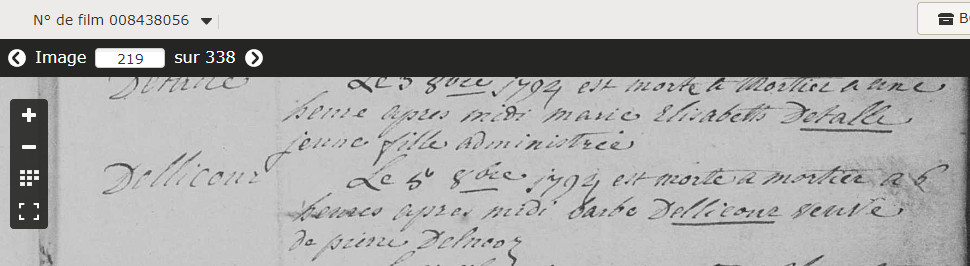 N° de film 008438056
B
Image 219 sur 338
Detalle Le 5 8bre 1794 est morte a Mortier a une
heure apres midi marie Elisabeth Detalle
jeune fille administrée
Dellicour Le 5 8bre 1794 est morte a mortier a 5
heures apres midi barbe Dellicour veuve
de pierre Delnooz